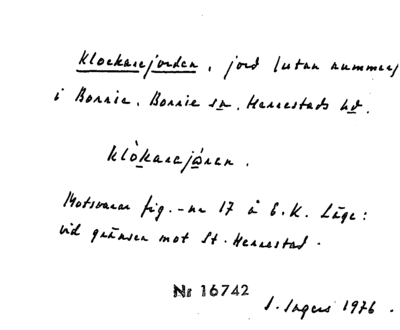 Klockarejorden, jord (utan nummer)
i Borrie, Borrie sn, Herrestads hd.
klòkarejǫ́ren.
Motsvarar fig.-nr 17 å E.K. Läge:
vid gränsen mot St. Herrestad.
Nr 16742
I. Ingers 1976.